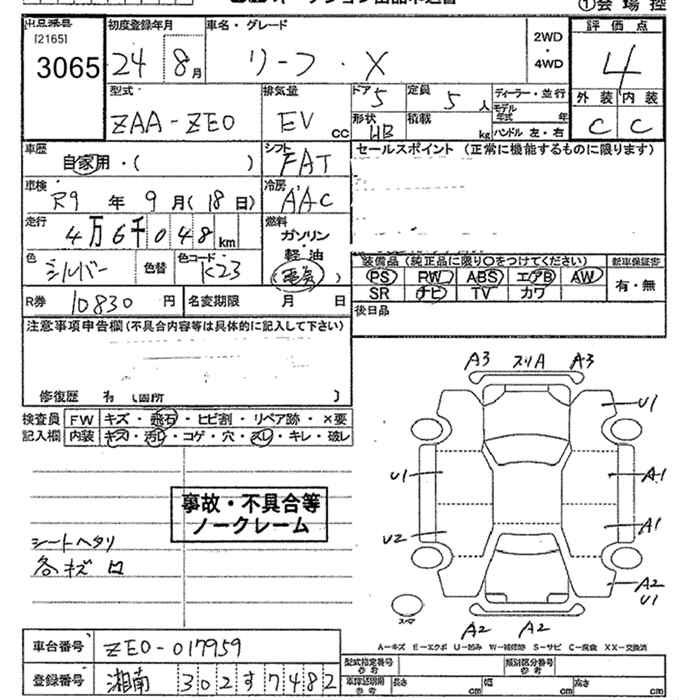 ①会場控
出品番号 初度登録年月 車名・グレード 2WD・4WD 評価点
[2165]
3065 24 8月 リーフ・X 4
型式 排気量 ドア 5 定員 5人 ディーラー・並行 外装 内装
モデル年式 年
ZAA-ZE0 EV cc 形状 HB 積載 kg ハンドル 左・右 C C
車歴 自家用・( ) シフト FAT セールスポイント (正常に機能するものに限ります)
車検 R9年9月(18日) 冷房 AAC
走行 4万6千048km 燃料 ガソリン・軽油 (電気)
色 シルバー 色替 色コード K23
装備品(純正品に限り○をつけてください) 新車保証書
PS PW ABS エアB AW 有・無
SR ナビ TV カワ
R券 10830円 名変期限 月 日 後日品
注意事項申告欄(不具合内容等は具体的に記入して下さい)
修復歴 有 (箇所 )
検査員 FW キズ・飛石・ヒビ割・リペア跡・×要
記入欄 内装 キズ・汚レ・コゲ・穴・スレ・キレ・破レ
A3 スリA A3
U1
U1 A1
U2 A1
A2
U1
A2 A2
事故・不具合等
ノークレーム
シートヘタリ
各キズ凹
A-キズ E-エクボ U-凹み W-補修跡 S-サビ C-腐食 XX-交換済
車台番号 ZE0-017959
型式指定番号 参考 類別区分番号 参考
登録番号 湘南 302す7482
車検証明用 参考 長さ cm 幅 cm 高さ cm